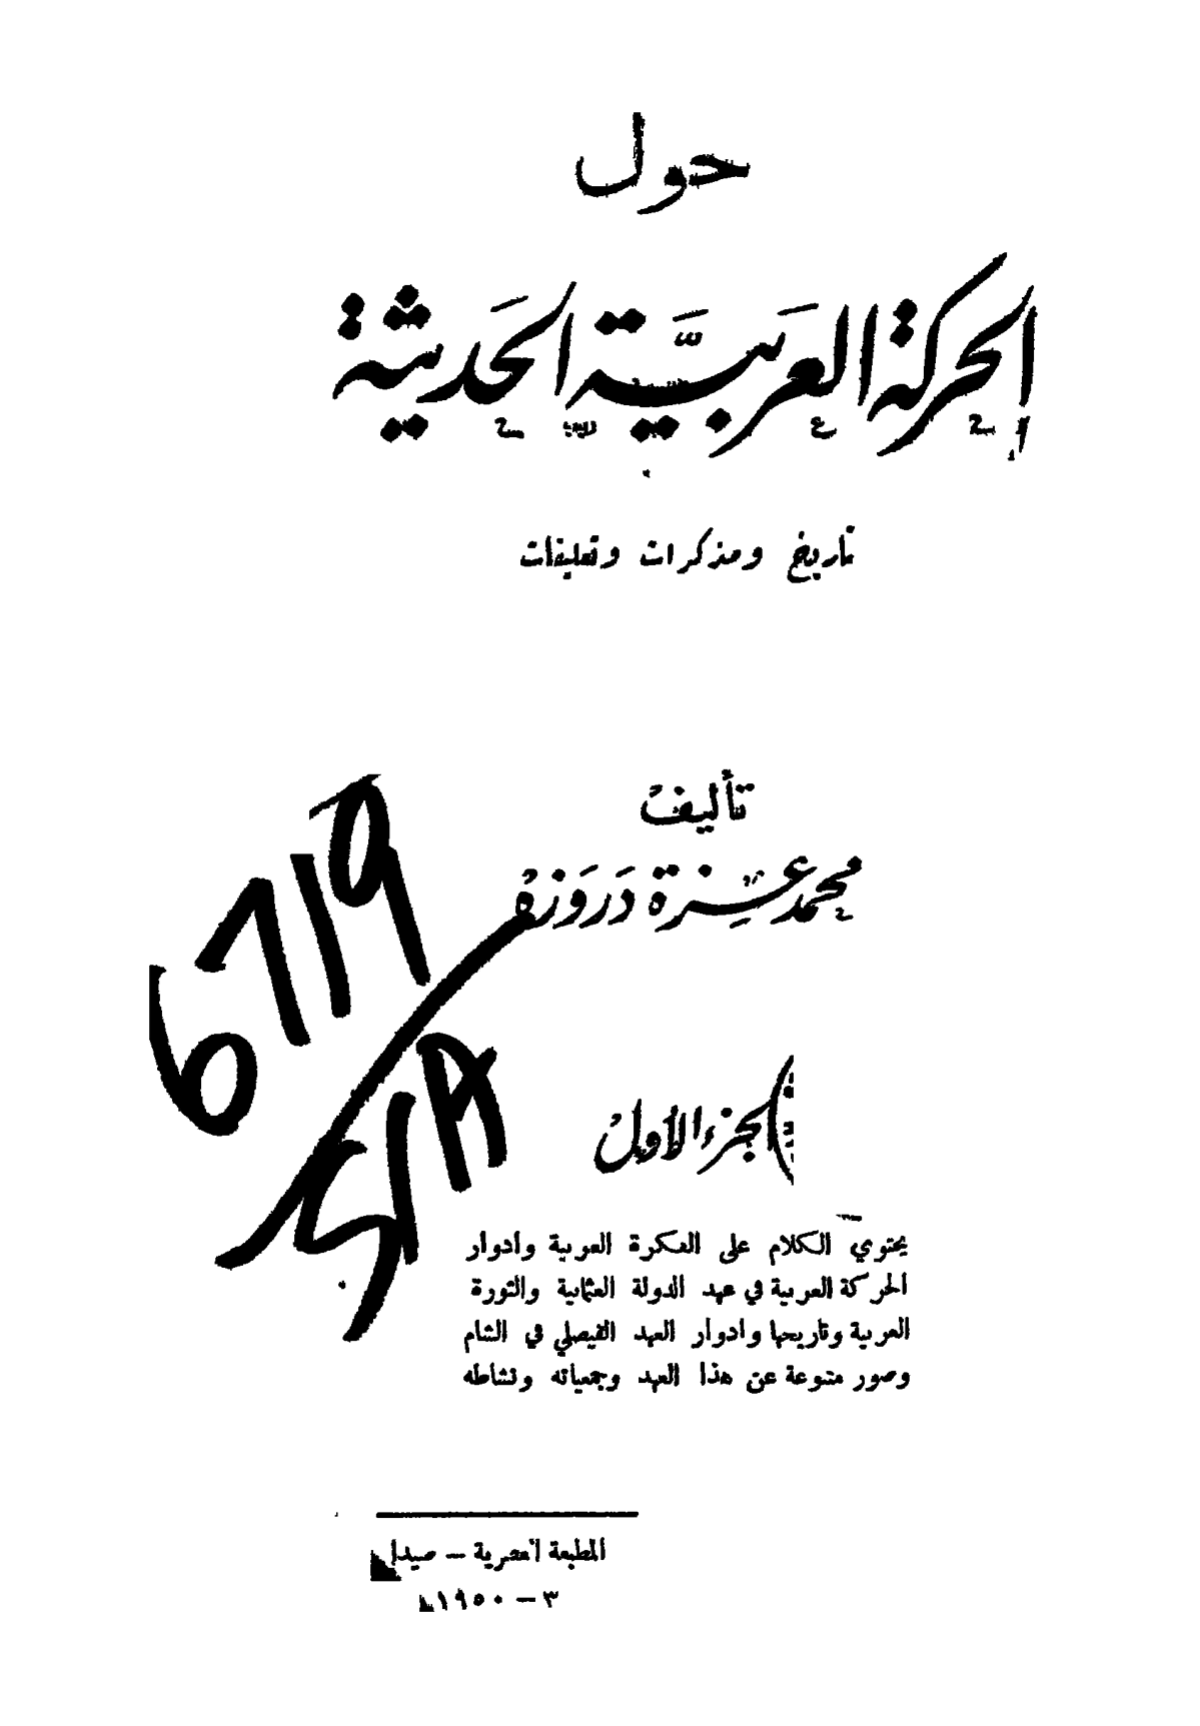 حول
الحركة العربية الحديثة
تاريخ ومذكرات وتعليقات
تأليف
محمد عزة دروزه
الجزء الأول
يحتوي الكلام على الفكرة العربية وادوار
الحركة العربية في عهد الدولة العثمانية والثورة
العربية وتاريخها وادوار العهد الفيصلي في الشام
وصور متنوعة عن هذا العهد وجمعياته ونشاطه
المطبعة العصرية – صيدا
٣ – ١٩٥٠